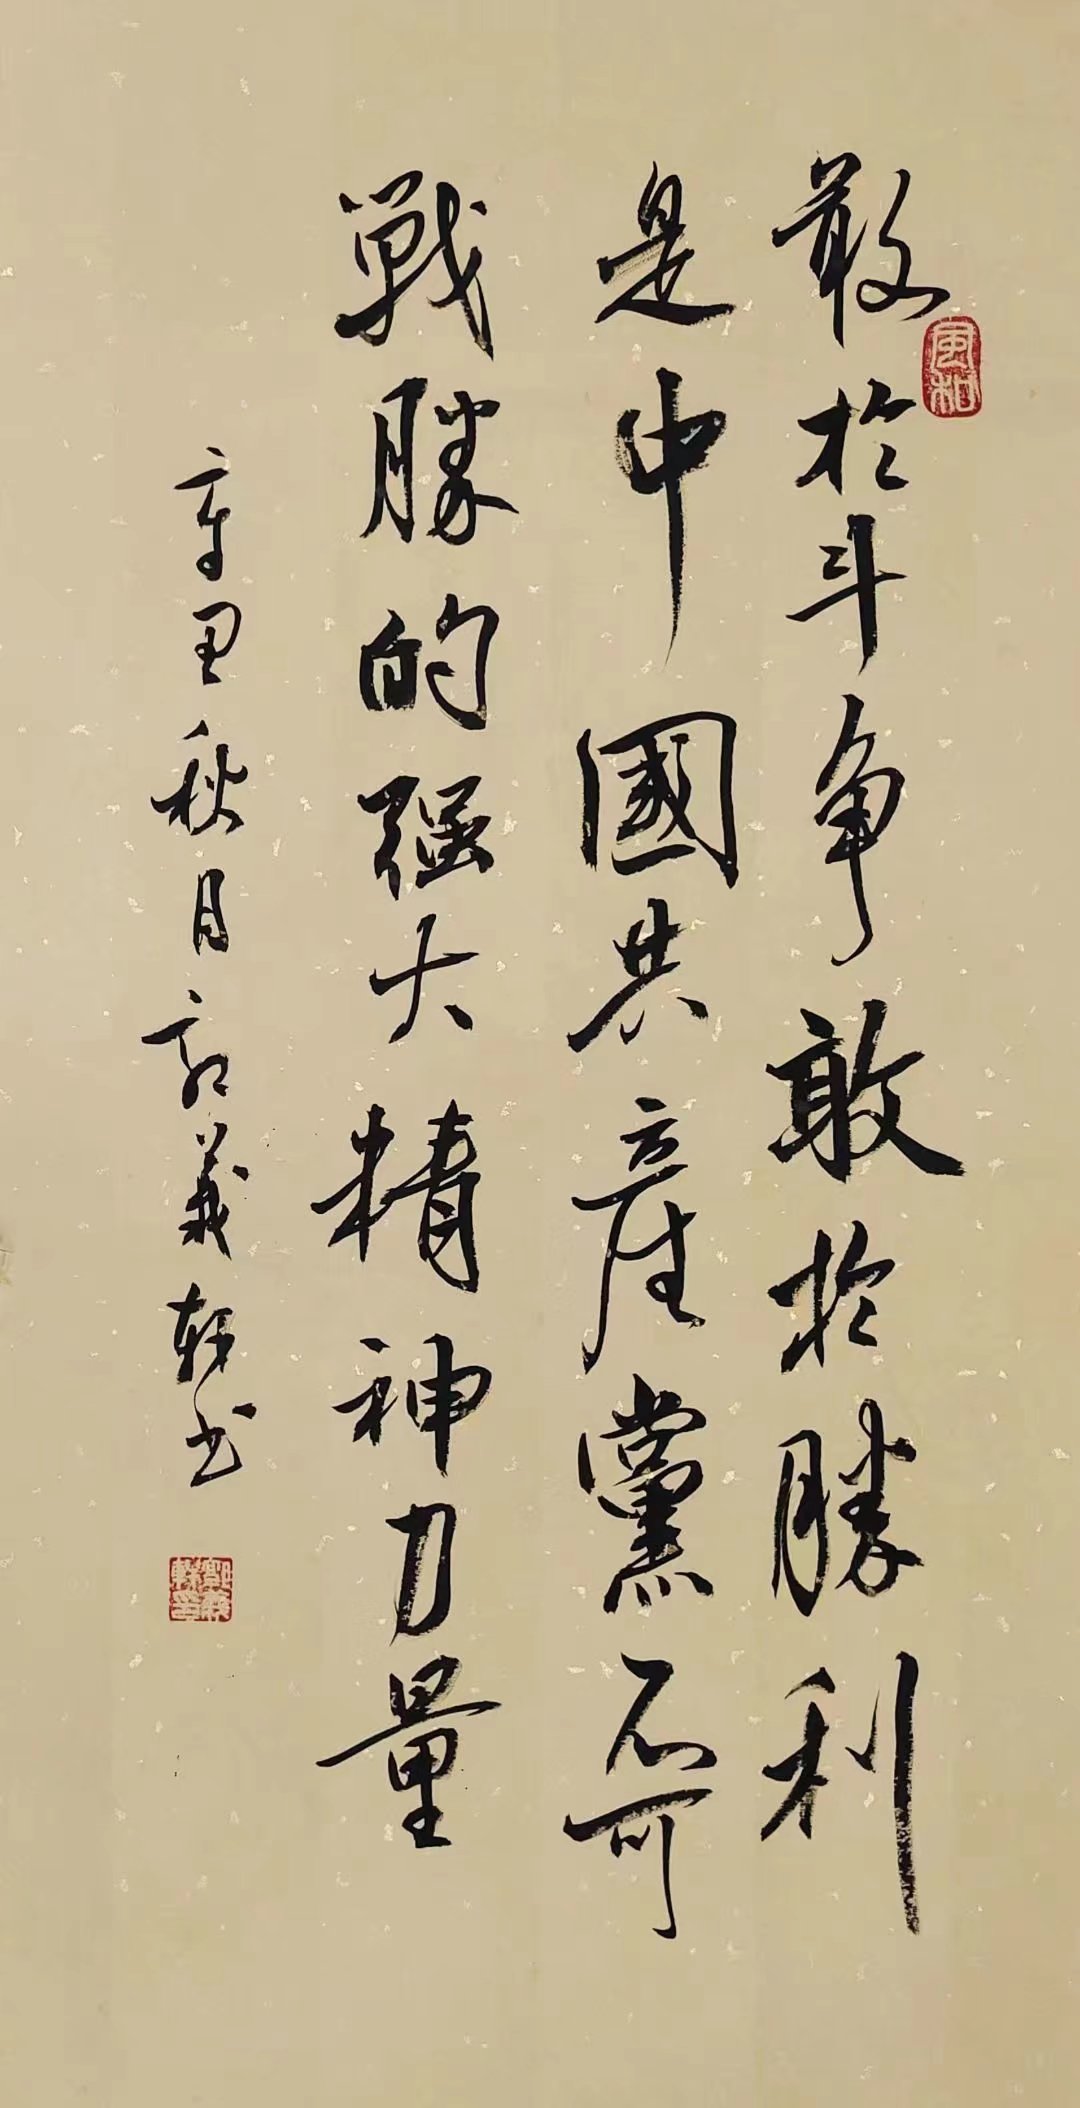 敢於斗争敢於勝利
是中國共產黨不可
戰勝的强大精神力量
辛丑秋月郭義軒書
風和
郭義軒印